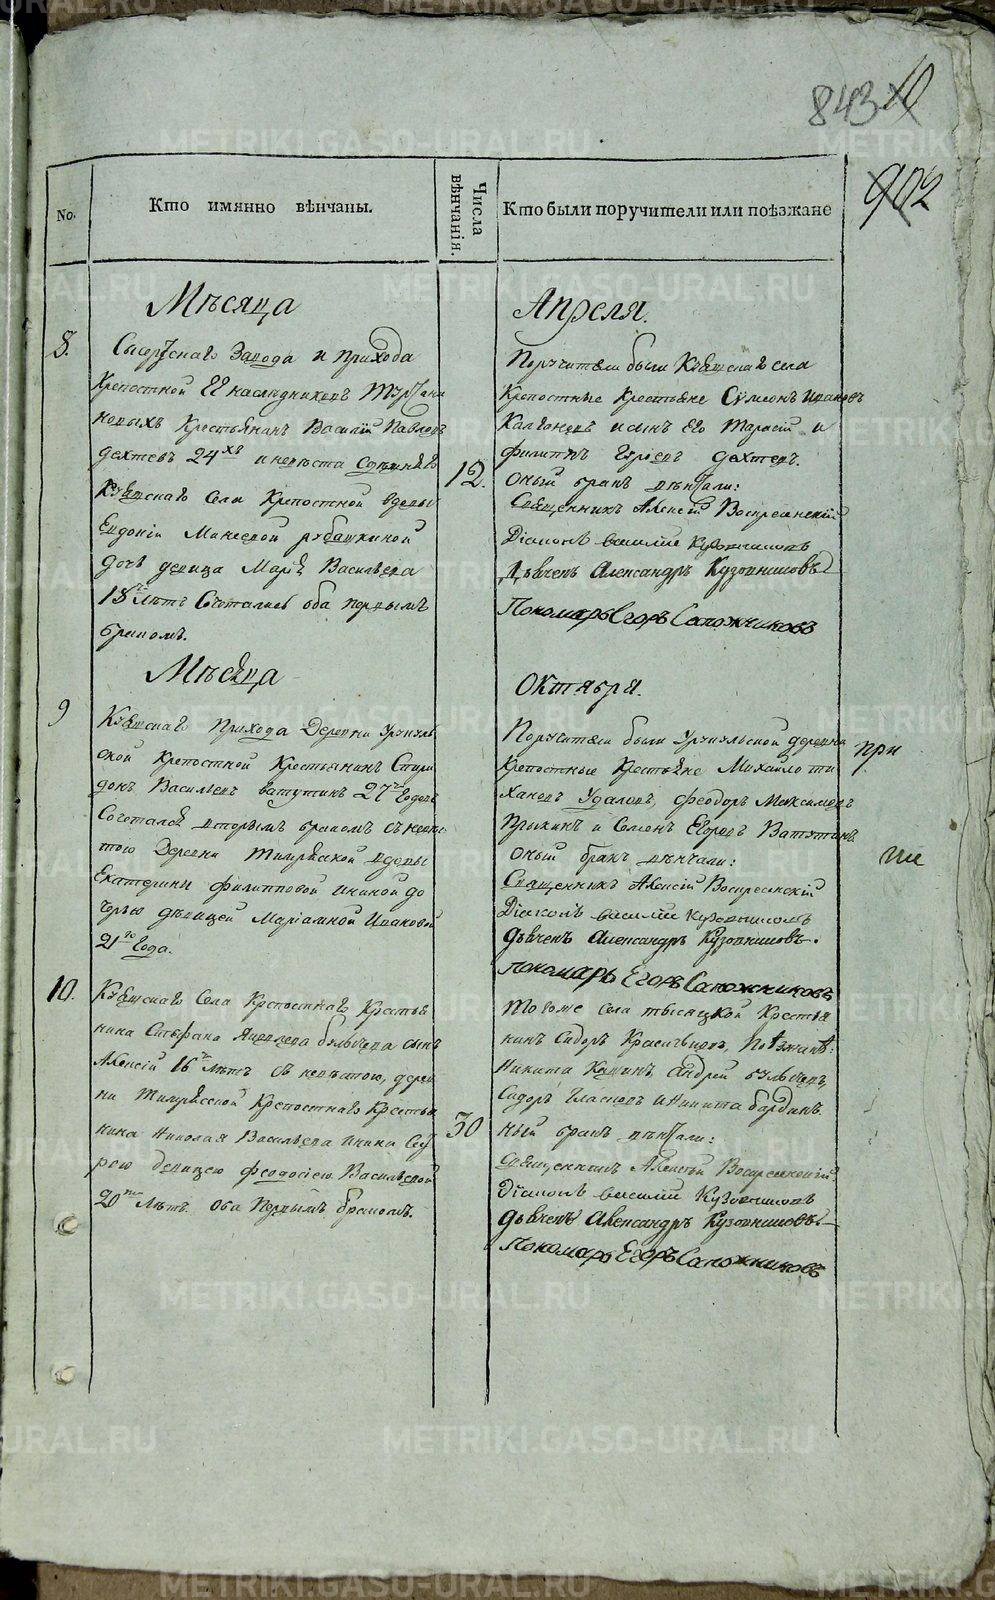 843
902
No.
Кто имянно вѣнчаны.
Числа вѣнчанія.
Кто были поручители или поѣзжане
Мѣсяца
8.
Сысертскаго Завода и прихода
Крепостной Её наслѣдниковъ Турчани
новыхъ Крестьянинъ Василій Павловъ
дехтевъ 24хъ и невѣста
села Крепостной вдовы
Евдокіи рубашкиной
дочь девица Маріѧ Васильева
18 Лѣтъ Сочетались оба первымъ
бракомъ.
12.
Апреля.
Поручители были села
Крепостные Крестьѧне Сѵмеонъ Ивановъ
и сынъ его Тарасій и
филиппъ Егоровъ дехтевъ.
оный бракъ вѣнчали:
Священникъ Алексій Воскресенскій
Діаконъ василие Кузовниковъ
Дьячекъ Александръ Кузовниковъ
Пономарь Егоръ Сапожниковъ
Мѣсѧца
9
прихода Деревни
ской крепостной Крестьянинъ Спири
донъ Васильевъ ватутинъ 27 Годовъ
Сочетался вторымъ бракомъ съ невѣс
тою Деревни вдовы
Екатерины филипповой до
черью дѣвицей Маріамной Ивановой
21го Года.
Октября.
Поручители были деревни
Крепостные Крестьѧне Михайло ти
хановъ Удаловъ, феодоръ Максимовъ
и Семенъ Егоровъ Ватутинъ
оный бракъ вѣнчали:
Священникъ Алексій Воскресенскій
Діаконъ василие Кузовниковъ
Дьячекъ Александръ Кузовниковъ.
пономарь Егоръ Сапожниковъ
при
10.
Села крепостнаго Кресть
нина Стефана Яковлева сынъ
Алексій 16 Лѣтъ съ невѣстою, дерев
ни Крепостнаго Кресть
нина Николая Васильева
рою девицею феодосіею Васильевой
20ти Лѣтъ. Оба Первымъ бракомъ.
30
Тогоже села тысяцкой Кресть
нинъ Сидоръ Поѣзжанѣ:
Никита Андрей
Сидоръ и Никита
ный бракъ вѣнчали:
Священникъ Алексѣй Воскресенскій
Діаконъ василие Кузовниковъ
дьячекъ Александръ Кузовниковъ
пономарь Егоръ Сапожниковъ
METRIKI.GASO-URAL.RU